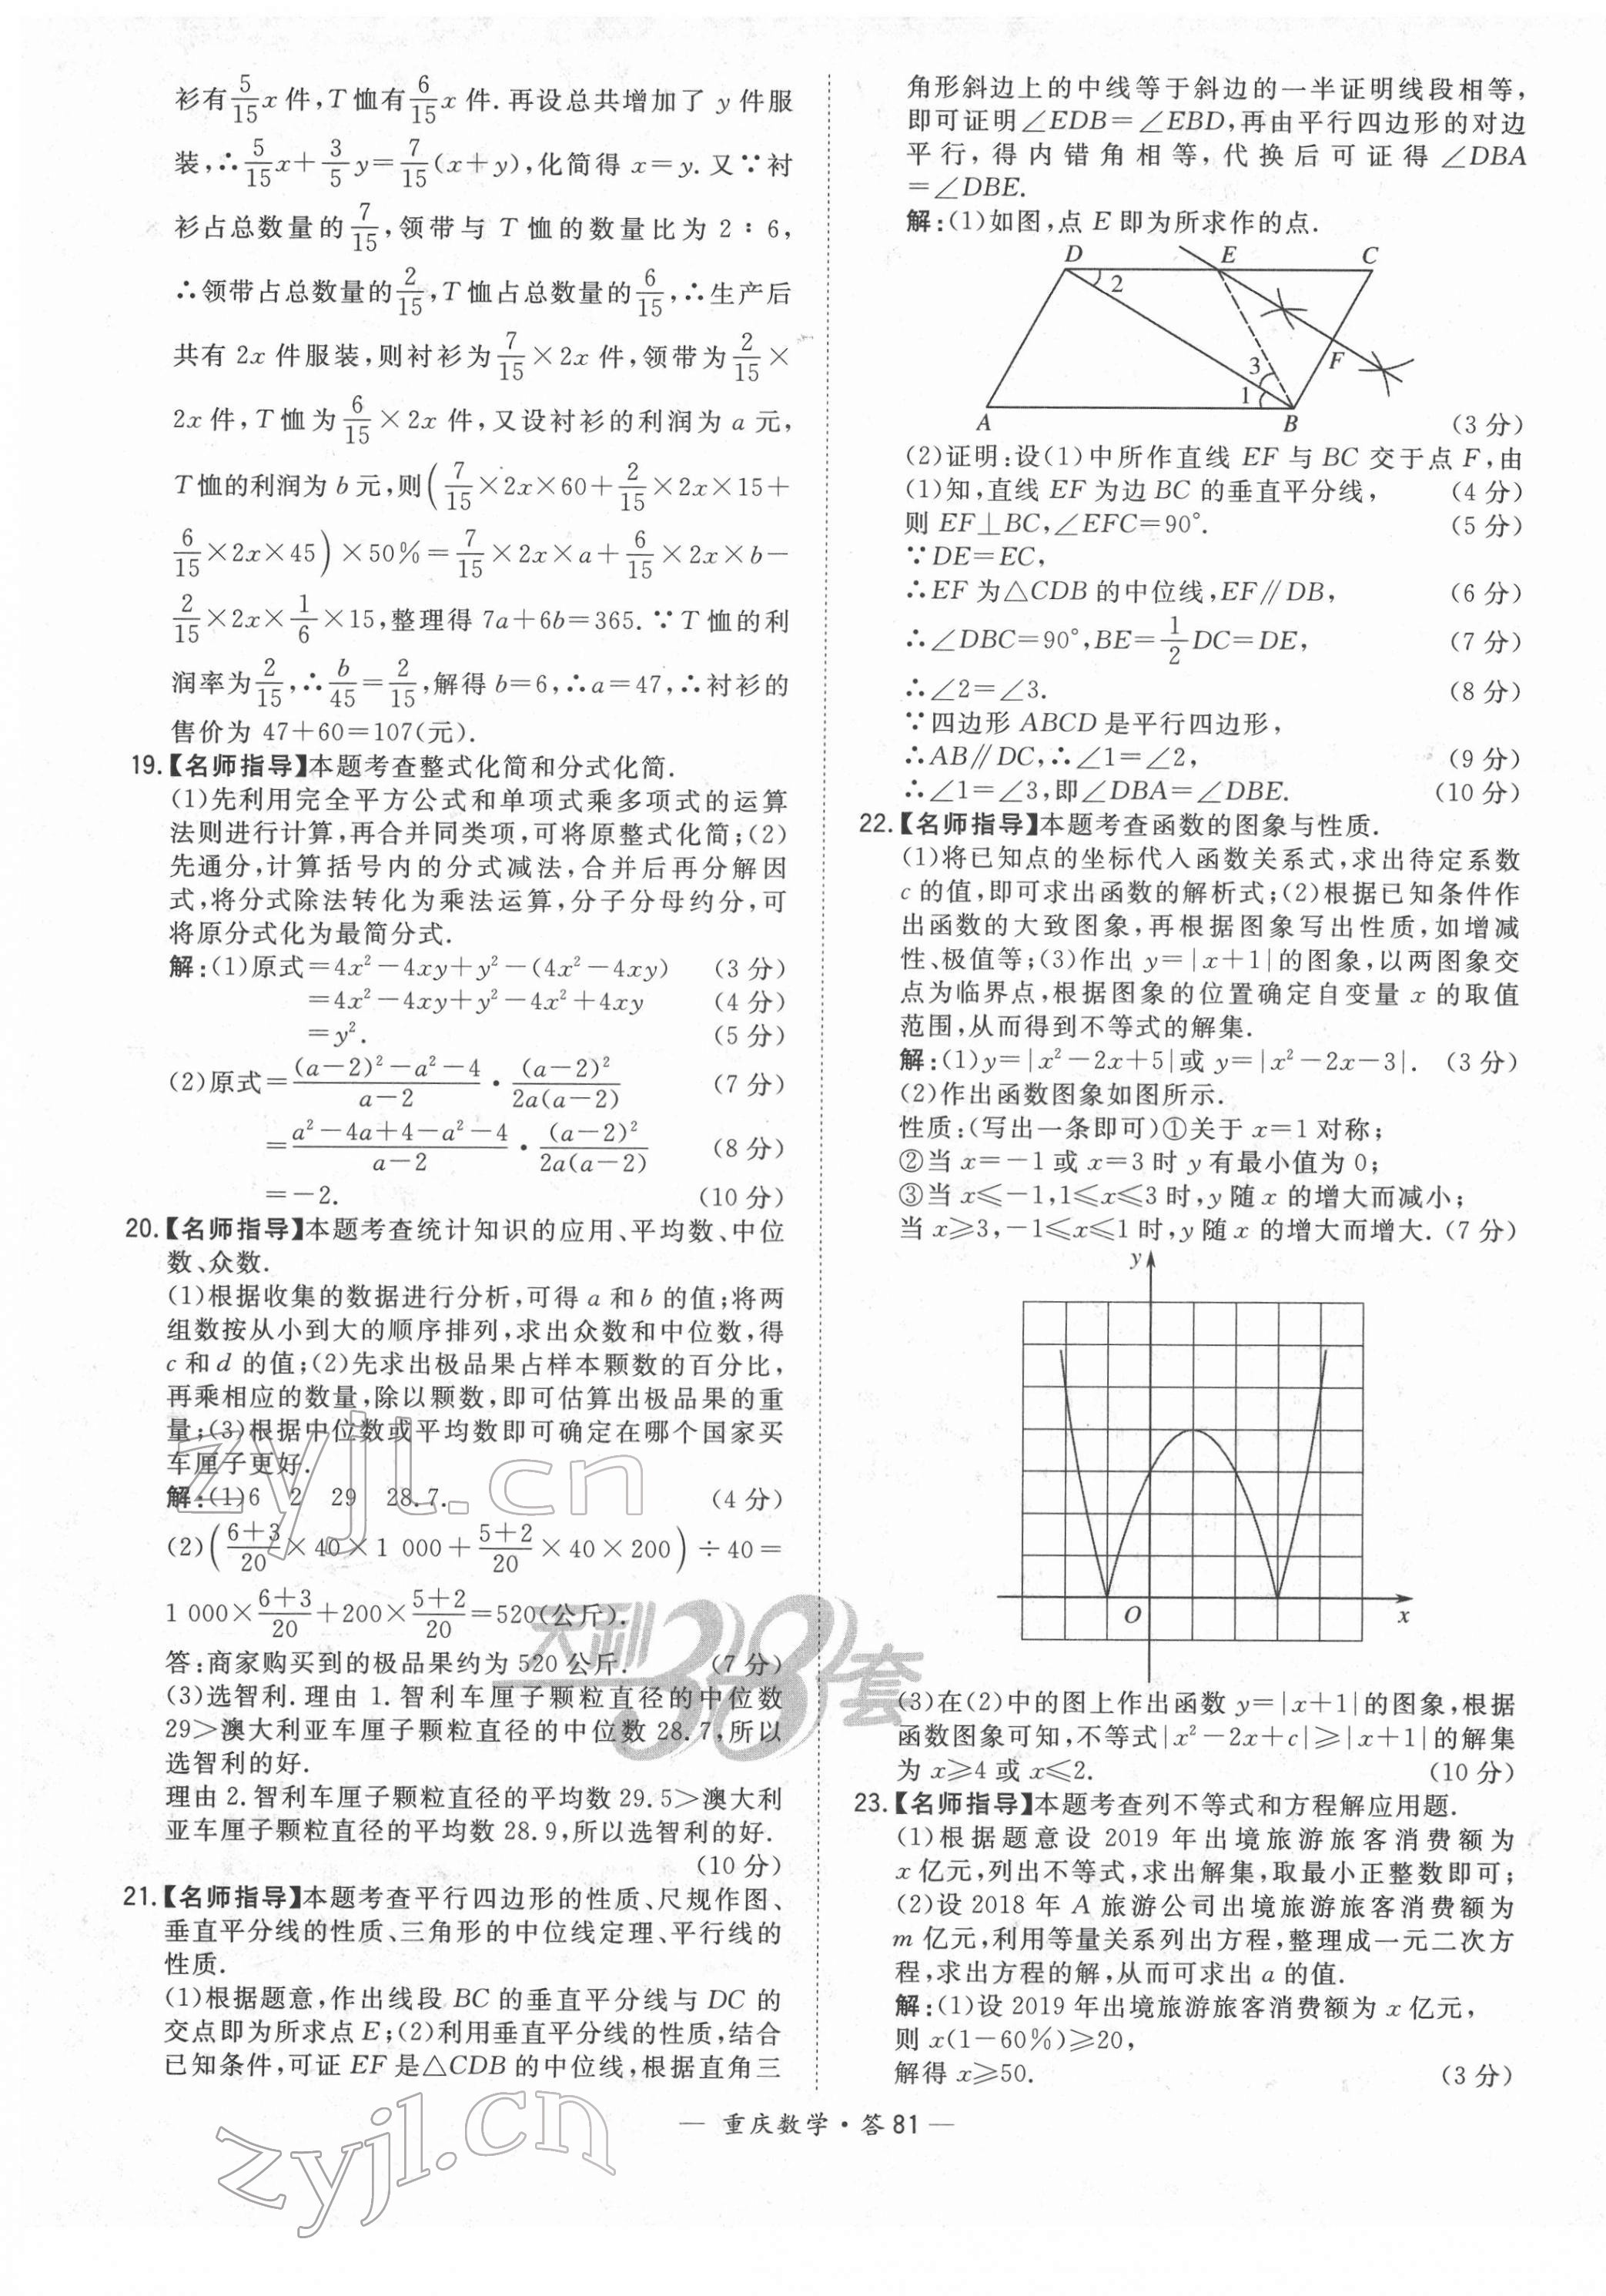 衫有5/15x件,T恤有6/15x件.再设总共增加了y件服
装,∴5/15x+3/5y=7/15(x+y),化简得x=y.又∵衬
衫占总数量的7/15,领带与T恤的数量比为2∶6,
∴领带占总数量的2/15,T恤占总数量的6/15,∴生产后
共有2x件服装,则衬衫为7/15×2x件,领带为2/15×
2x件,T恤为6/15×2x件,又设衬衫的利润为a元,
T恤的利润为b元,则(7/15×2x×60+2/15×2x×15+
6/15×2x×45)×50%=7/15×2x×a+6/15×2x×b-
2/15×2x×1/6×15,整理得7a+6b=365.∵T恤的利
润率为2/15,∴b/45=2/15,解得b=6,∴a=47,∴衬衫的
售价为47+60=107(元).
19.【名师指导】本题考查整式化简和分式化简.
(1)先利用完全平方公式和单项式乘多项式的运算
法则进行计算,再合并同类项,可将原整式化简;(2)
先通分,计算括号内的分式减法,合并后再分解因
式,将分式除法转化为乘法运算,分子分母约分,可
将原分式化为最简分式.
解:(1)原式=4x²-4xy+y²-(4x²-4xy) (3分)
=4x²-4xy+y²-4x²+4xy (4分)
=y². (5分)
(2)原式=(a-2)²-a²-4/a-2·(a-2)²/2a(a-2) (7分)
=a²-4a+4-a²-4/a-2·(a-2)²/2a(a-2) (8分)
=-2. (10分)
20.【名师指导】本题考查统计知识的应用、平均数、中位
数、众数.
(1)根据收集的数据进行分析,可得a和b的值;将两
组数按从小到大的顺序排列,求出众数和中位数,得
c和d的值;(2)先求出极品果占样本颗数的百分比,
再乘相应的数量,除以颗数,即可估算出极品果的重
量;(3)根据中位数或平均数即可确定在哪个国家买
车厘子更好.
解:(1)6 2 29 28.7. (4分)
(2)(6+3/20×40×1 000+5+2/20×40×200)÷40=
1 000×6+3/20+200×5+2/20=520(公斤).
答:商家购买到的极品果约为520公斤. (7分)
(3)选智利.理由1.智利车厘子颗粒直径的中位数
29>澳大利亚车厘子颗粒直径的中位数28.7,所以
选智利的好.
理由2.智利车厘子颗粒直径的平均数29.5>澳大利
亚车厘子颗粒直径的平均数28.9,所以选智利的好.
(10分)
21.【名师指导】本题考查平行四边形的性质、尺规作图、
垂直平分线的性质、三角形的中位线定理、平行线的
性质.
(1)根据题意,作出线段BC的垂直平分线与DC的
交点即为所求点E;(2)利用垂直平分线的性质,结合
已知条件,可证EF是△CDB的中位线,根据直角三
角形斜边上的中线等于斜边的一半证明线段相等,
即可证明∠EDB=∠EBD,再由平行四边形的对边
平行,得内错角相等,代换后可证得∠DBA
=∠DBE.
解:(1)如图,点E即为所求作的点.
D E C
2
3 F
1
A B (3分)
(2)证明:设(1)中所作直线EF与BC交于点F,由
(1)知,直线EF为边BC的垂直平分线, (4分)
则EF⊥BC,∠EFC=90°. (5分)
∵DE=EC,
∴EF为△CDB的中位线,EF∥DB, (6分)
∴∠DBC=90°,BE=1/2DC=DE, (7分)
∴∠2=∠3. (8分)
∵四边形ABCD是平行四边形,
∴AB∥DC,∴∠1=∠2, (9分)
∴∠1=∠3,即∠DBA=∠DBE. (10分)
22.【名师指导】本题考查函数的图象与性质.
(1)将已知点的坐标代入函数关系式,求出待定系数
c的值,即可求出函数的解析式;(2)根据已知条件作
出函数的大致图象,再根据图象写出性质,如增减
性、极值等;(3)作出y=|x+1|的图象,以两图象交
点为临界点,根据图象的位置确定自变量x的取值
范围,从而得到不等式的解集.
解:(1)y=|x²-2x+5|或y=|x²-2x-3|. (3分)
(2)作出函数图象如图所示.
性质:(写出一条即可)①关于x=1对称;
②当x=-1或x=3时y有最小值为0;
③当x≤-1,1≤x≤3时,y随x的增大而减小;
当x≥3,-1≤x≤1时,y随x的增大而增大.(7分)
y
O x
(3)在(2)中的图上作出函数y=|x+1|的图象,根据
函数图象可知,不等式|x²-2x+c|≥|x+1|的解集
为x≥4或x≤2. (10分)
23.【名师指导】本题考查列不等式和方程解应用题.
(1)根据题意设2019年出境旅游旅客消费额为
x亿元,列出不等式,求出解集,取最小正整数即可;
(2)设2018年A旅游公司出境旅游旅客消费额为
m亿元,利用等量关系列出方程,整理成一元二次方
程,求出方程的解,从而可求出a的值.
解:(1)设2019年出境旅游旅客消费额为x亿元,
则x(1-60%)≥20,
解得x≥50. (3分)
— 重庆数学·答81 —
zyjl.cn
天利38套
zyjl.cn